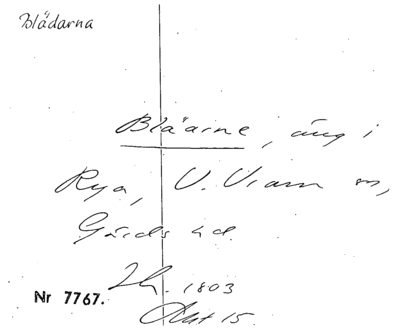 Blädarna
Bläarne, äng i
Rya, V. Vram sn,
Gärds hd.
Lh. 1803
Nr 7767.
Akt 15.